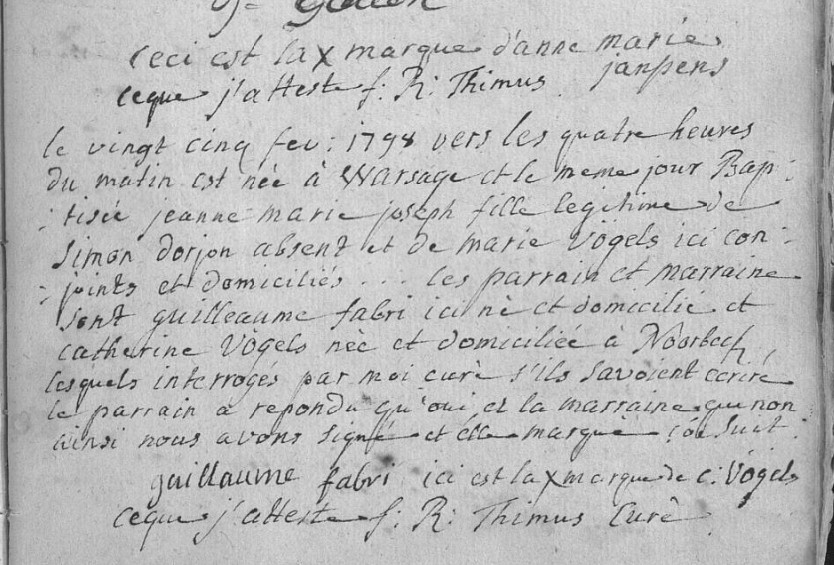 ceci est la x marque d'anne marie
janssens
ceque j'atteste f: R: Thimus
le vingt cinq fev: 1798 vers les quatre heures
du matin est née à Warsage et le meme jour Bap:
:tisée jeanne marie joseph fille legitime de
simon dorjon absent et de marie Vögels ici con:
:joints et domiciliés ... les parrain et marraine
sont guilleaume fabri ici né et domicilié et
catherine Vögels née et domiciliée à Noorbech
lesquels interrogés par moi curé s'ils savoient ecrire
le parrain a repondu qu'oui et la marraine que non
ainsi nous avons signé et elle marqué suit
guillaume fabri ici est la x marque de c: Vögels
ceque j'atteste f: R: Thimus Curé